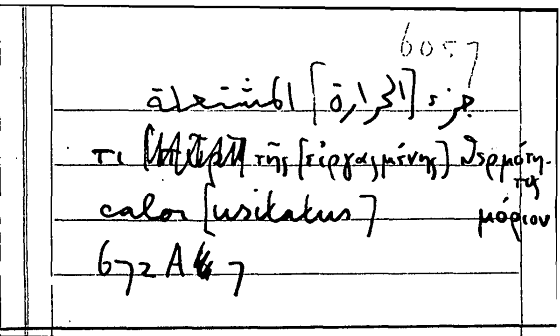 6057
جزء [الحرارة] المشتعلة
τι τῆς [εἰργασμένης] θερμότητος
calor [usitatus] μόριον
672 A 7